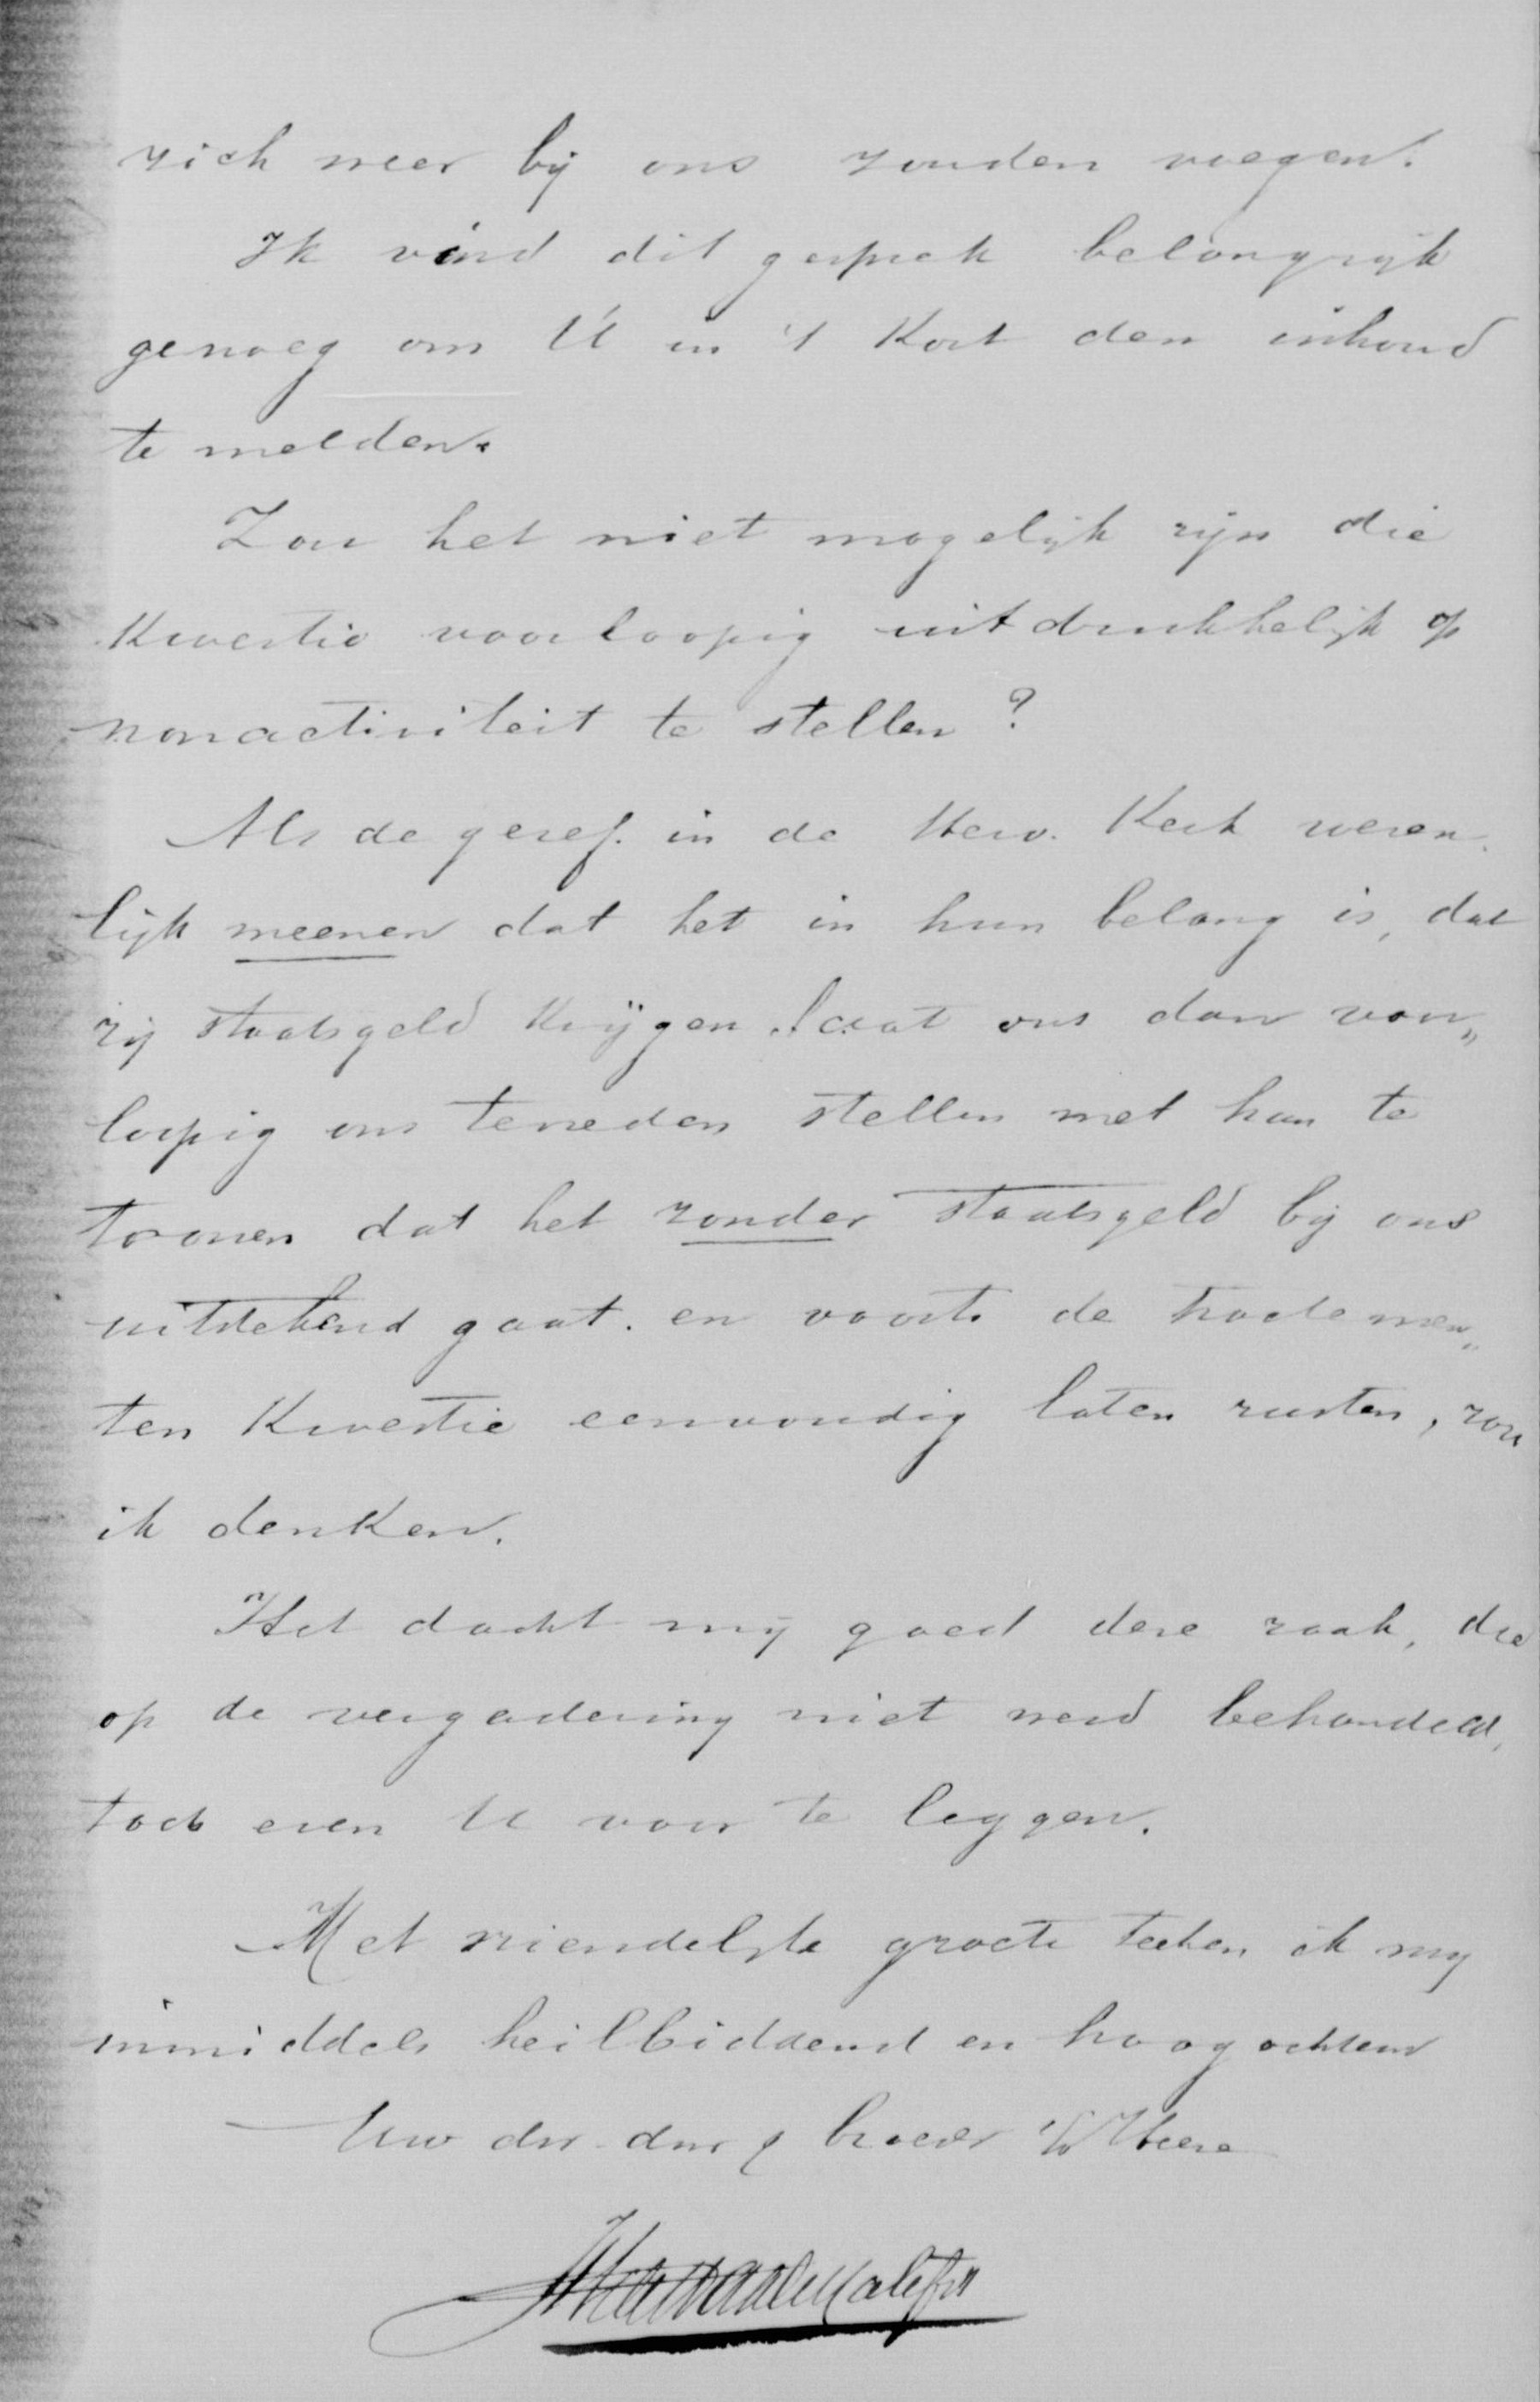 zich weer bij ons zouden voegen.
Ik vind dit gesprek belangrijk
genoeg om U in 't kort den inhoud
te melden.
Zou het niet mogelijk zijn die
kwestie voorloopig uitdrukkelijk op
nonactiviteit te stellen?
Als de geref. in de Herv. Kerk wezen-
lijk meenen dat het in hun belang is, dat
zij staatsgeld krijgen, laat ons dan voor„
loopig ons tevreden stellen met hun te
toonen dat het zonder staatsgeld bij ons
uitstekend gaat. en voorts de tractemen„
ten kwestie eenvoudig laten rusten, zou
ik denken.
Het dacht mij goed deze zaak, die
op de vergadering niet werd behandeld,
toch even U voor te leggen.
Met vriendelijke groete teeken ik mij
inmiddels heilbiddend en hoogachtend
Uw dw. dnr & broeder i/d Heere